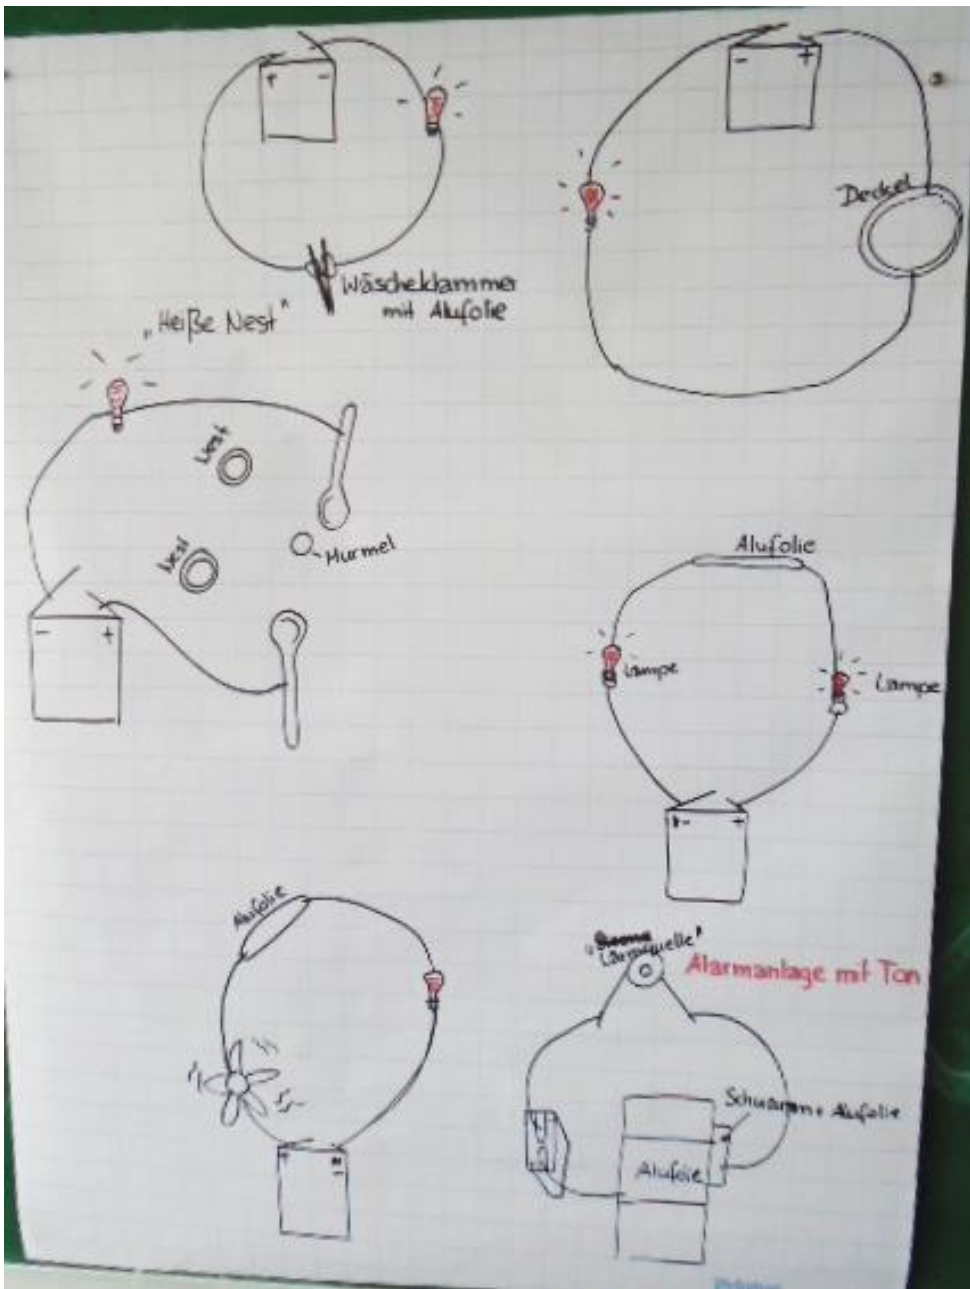 + -
- +
Deckel
Wäscheklammer
mit Alufolie
„Heiße Nest"
Nest
Murmel
Nest
- +
Alufolie
Lampe
Lampe
- +
Alufolie
Lärmquelle"
Alarmanlage mit Ton
+ -
Schwamm + Alufolie
Alufolie